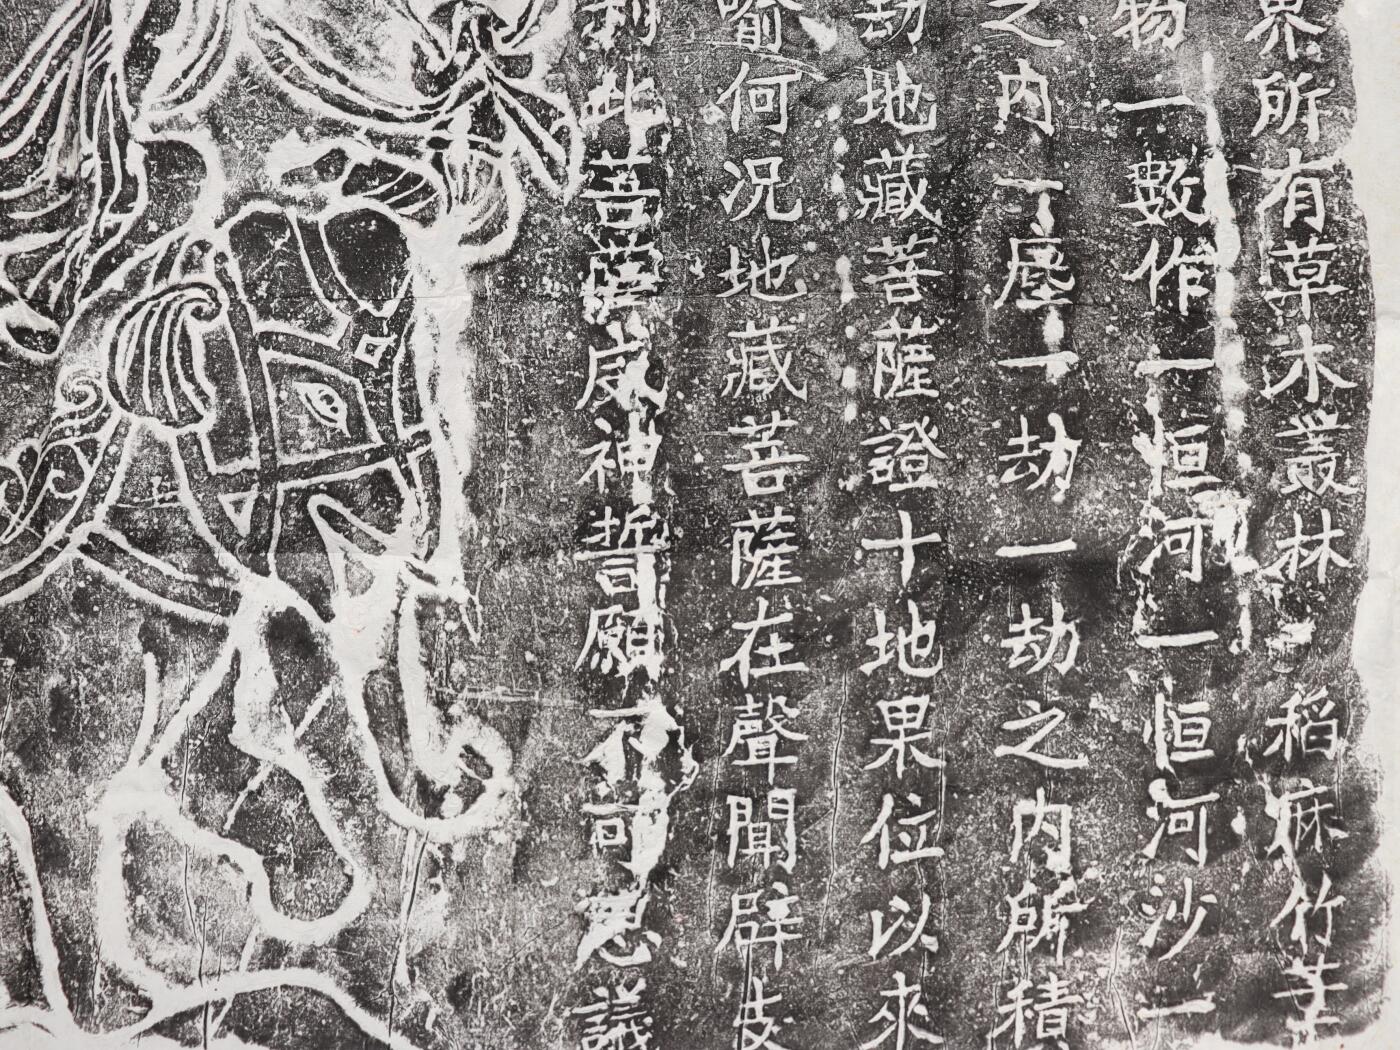 界所有草木叢林稻麻竹葦
物一數作一恒河一恒河沙一
之内一塵一劫一劫之内所積
劫地藏菩薩證十地果位以來
喻何况地藏菩薩在聲聞辟支
利此菩薩威神誓願不可思議